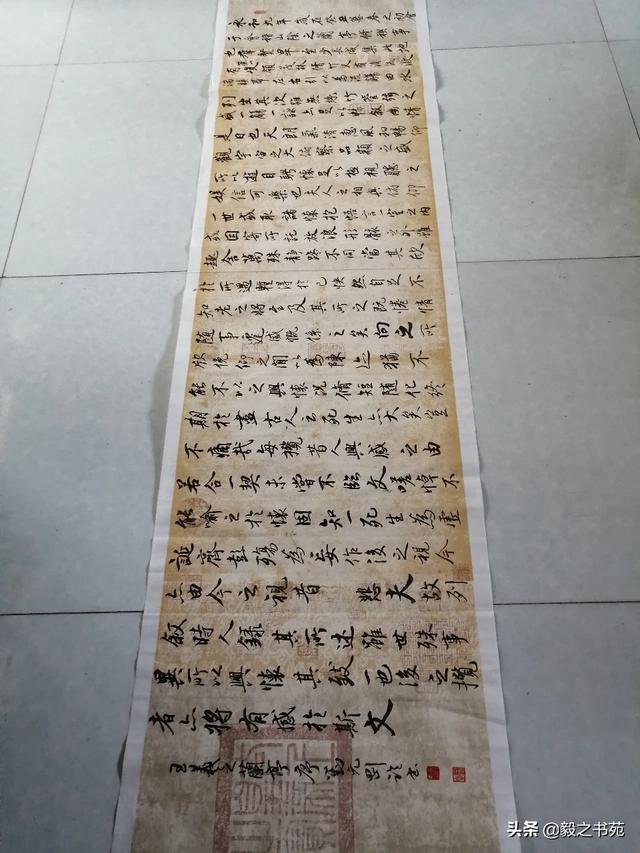 永和九年歲在癸丑暮春之初會
于會稽山陰之蘭亭脩稧事
也群賢畢至少長咸集此地
有峻領茂林脩竹又有清流激
湍暎帶左右引以為流觴曲水
列坐其次雖無絲竹管絃之
盛一觴一詠亦足以暢敘幽情
是日也天朗氣清惠風和暢仰
觀宇宙之大俯察品類之盛
所以遊目騁懷足以極視聽之
娛信可樂也夫人之相與俯仰
一世或取諸懷抱悟言一室之內
或因寄所託放浪形骸之外雖
趣舍萬殊靜躁不同當其欣
於所遇暫得於己快然自足不
知老之將至及其所之既惓情
隨事遷感慨係之矣向之所
欣俛仰之間以為陳迹猶不
能不以之興懷況脩短隨化終
期於盡古人云死生亦大矣豈
不痛哉每攬昔人興感之由
若合一契未嘗不臨文嗟悼不
能喻之於懷固知一死生為虛
誕齊彭殤為妄作後之視今
亦由今之視昔 悲夫故列
敘時人錄其所述雖世殊事
異所以興懷其致一也後之攬
者亦將有感於斯文
王羲之蘭亭序 元剛書
头条 @毅之书苑